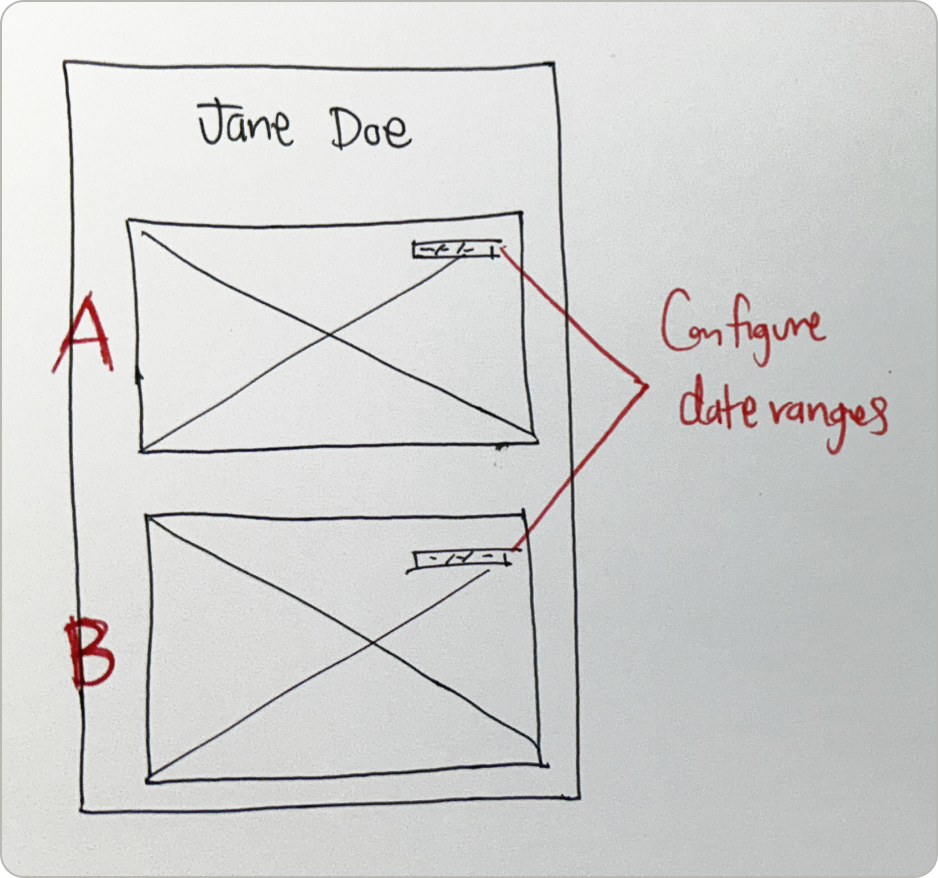 Jane Doe
A
Configure
date ranges
B